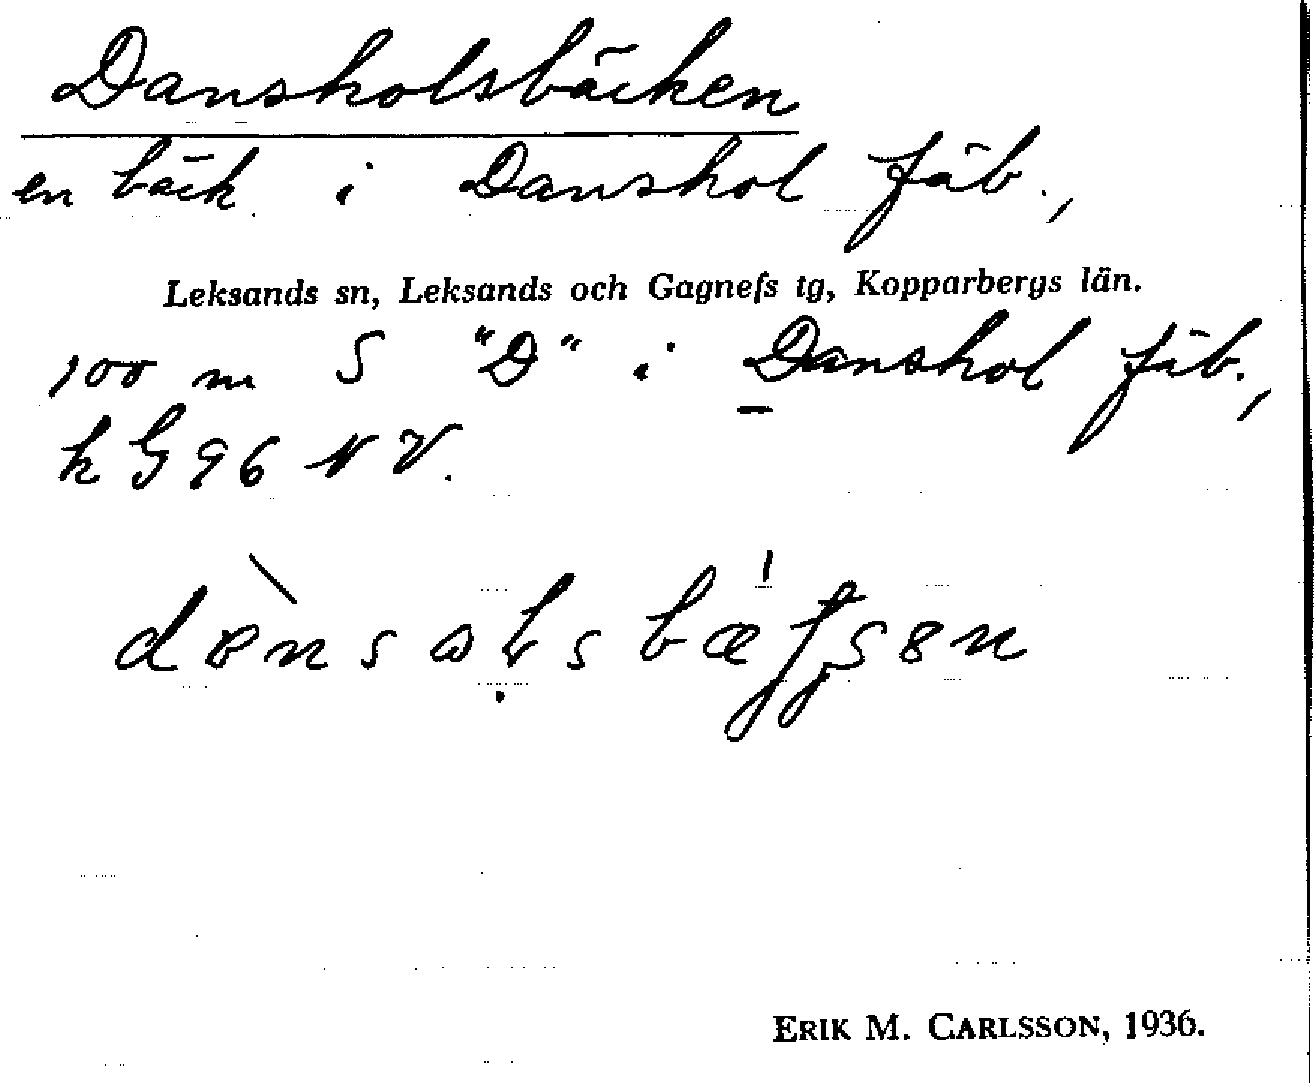 Dansholsbäcken
en bäck i Danshol fäb.,
Leksands sn, Leksands och Gagnefs tg, Kopparbergs län.
100 m S "D" i Danshol fäb.,
k G 96 N V.
ERIK M. CARLSSON, 1936.